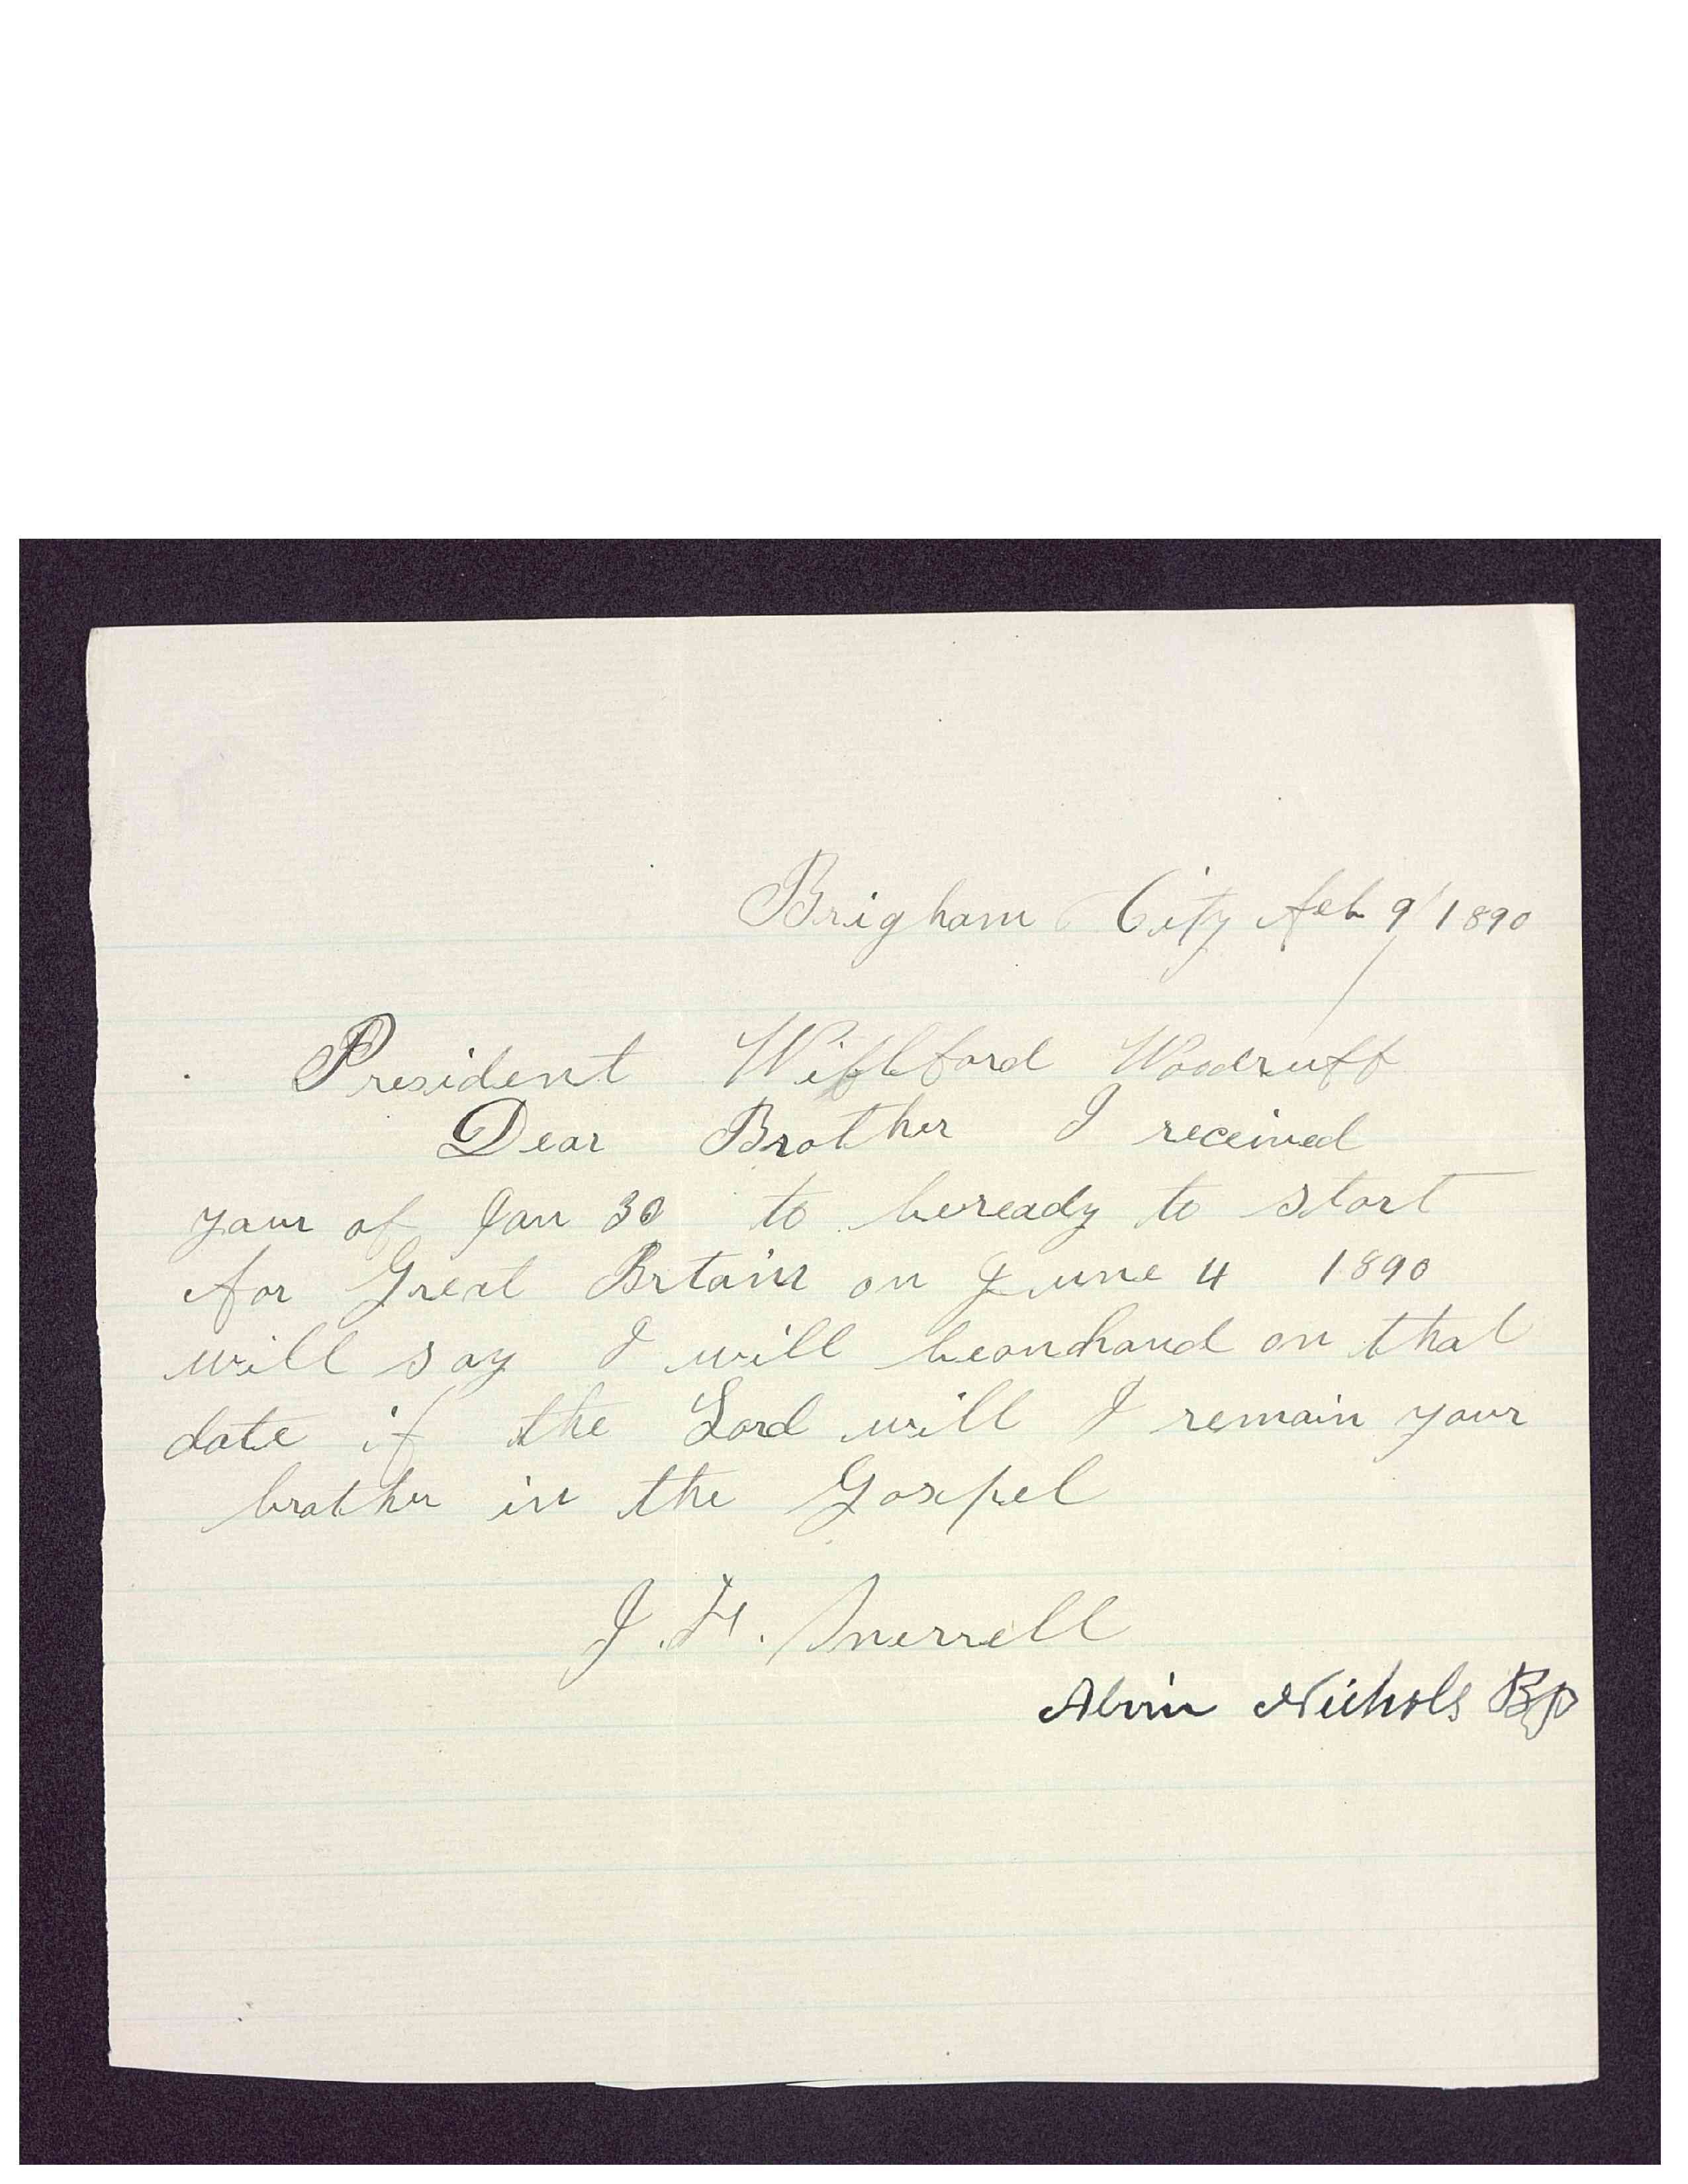 Brigham City Feb 9/1890
President Willford Woodruff
Dear Brother I received
your of Jan 30 to beready to start
for Great Brtain on June 4 1890
will say I will beonhand on that
date if the Lord will I remain your
brother in the Gospel
J. H. Merrell
Alvin Nichols Bp